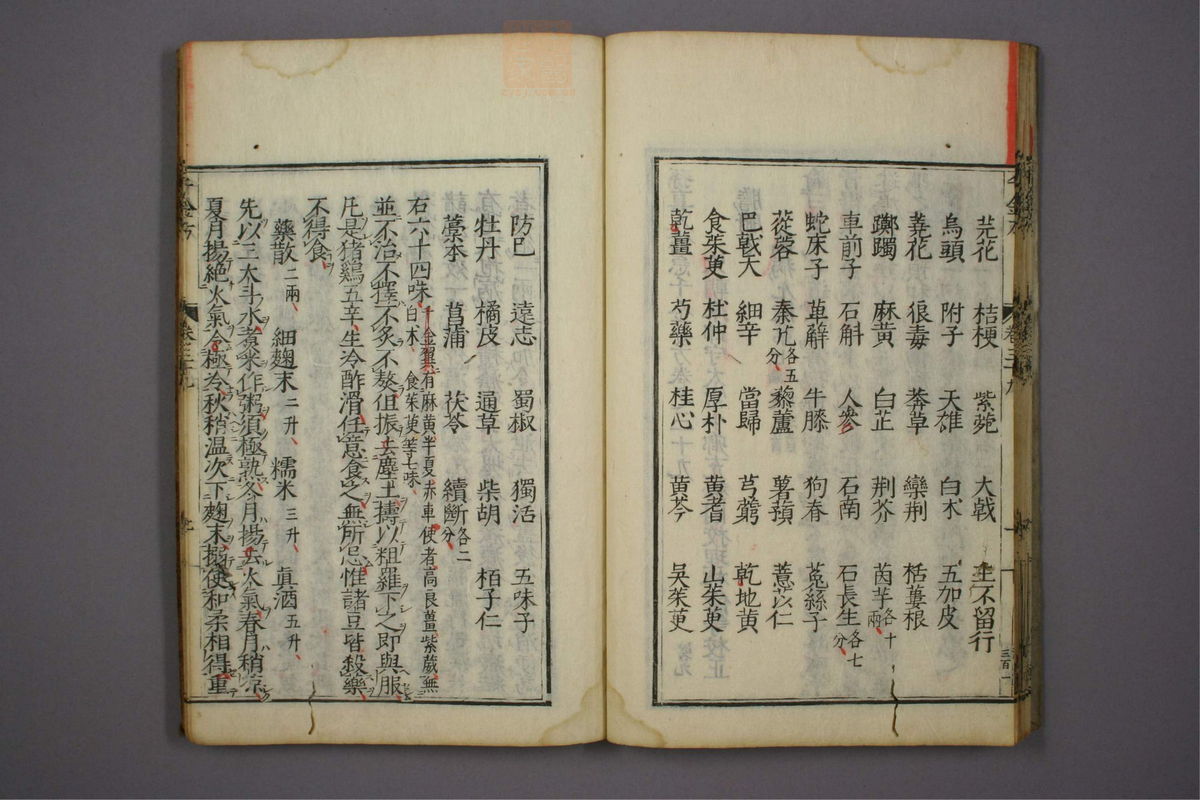 芫花 桔梗 紫菀 大戟 王不留行
烏頭 附子 天雄 白朮 五加皮
蕘花 狼毒 莽草 欒荆 栝蔞根
躑躅 麻黄 白芷 荆芥 茵芋各十兩
車前子 石斛 人參 石南 石長生各七分
蛇床子 萆薢 牛膝 狗脊 菟絲子
蓯蓉 秦艽各五分 藜蘆 薯蕷 薏苡仁
巴戟天 細辛 當歸 芎藭 乾地黄
食茱萸 杜仲 厚朴 黄耆 山茱萸
乾薑 芍藥 桂心 黄芩 吳茱萸
防巳 遠志 蜀椒 獨活 五味子
牡丹 橘皮 通草 柴胡 栢子仁
藁本 菖蒲 茯苓 續斷各二分
右六十四味千金翼有麻黄半夏赤車使者高良薑紫葳無白朮食茱萸等七味
並不治不擇不炙不熬但振去塵土擣以粗羅下之即與服
凡是猪鷄五辛生冷酢滑任意食之無所忌惟諸豆皆殺藥
不得食
藥散二兩 細麴末二升 糯米三升 真酒五升
先以三大斗水煮米作粥須極熟冬月揚去火氣春月稍凉
夏月揚絶火氣令極冷秋稍温次下麴末搦使和柔相得重
卷三十九